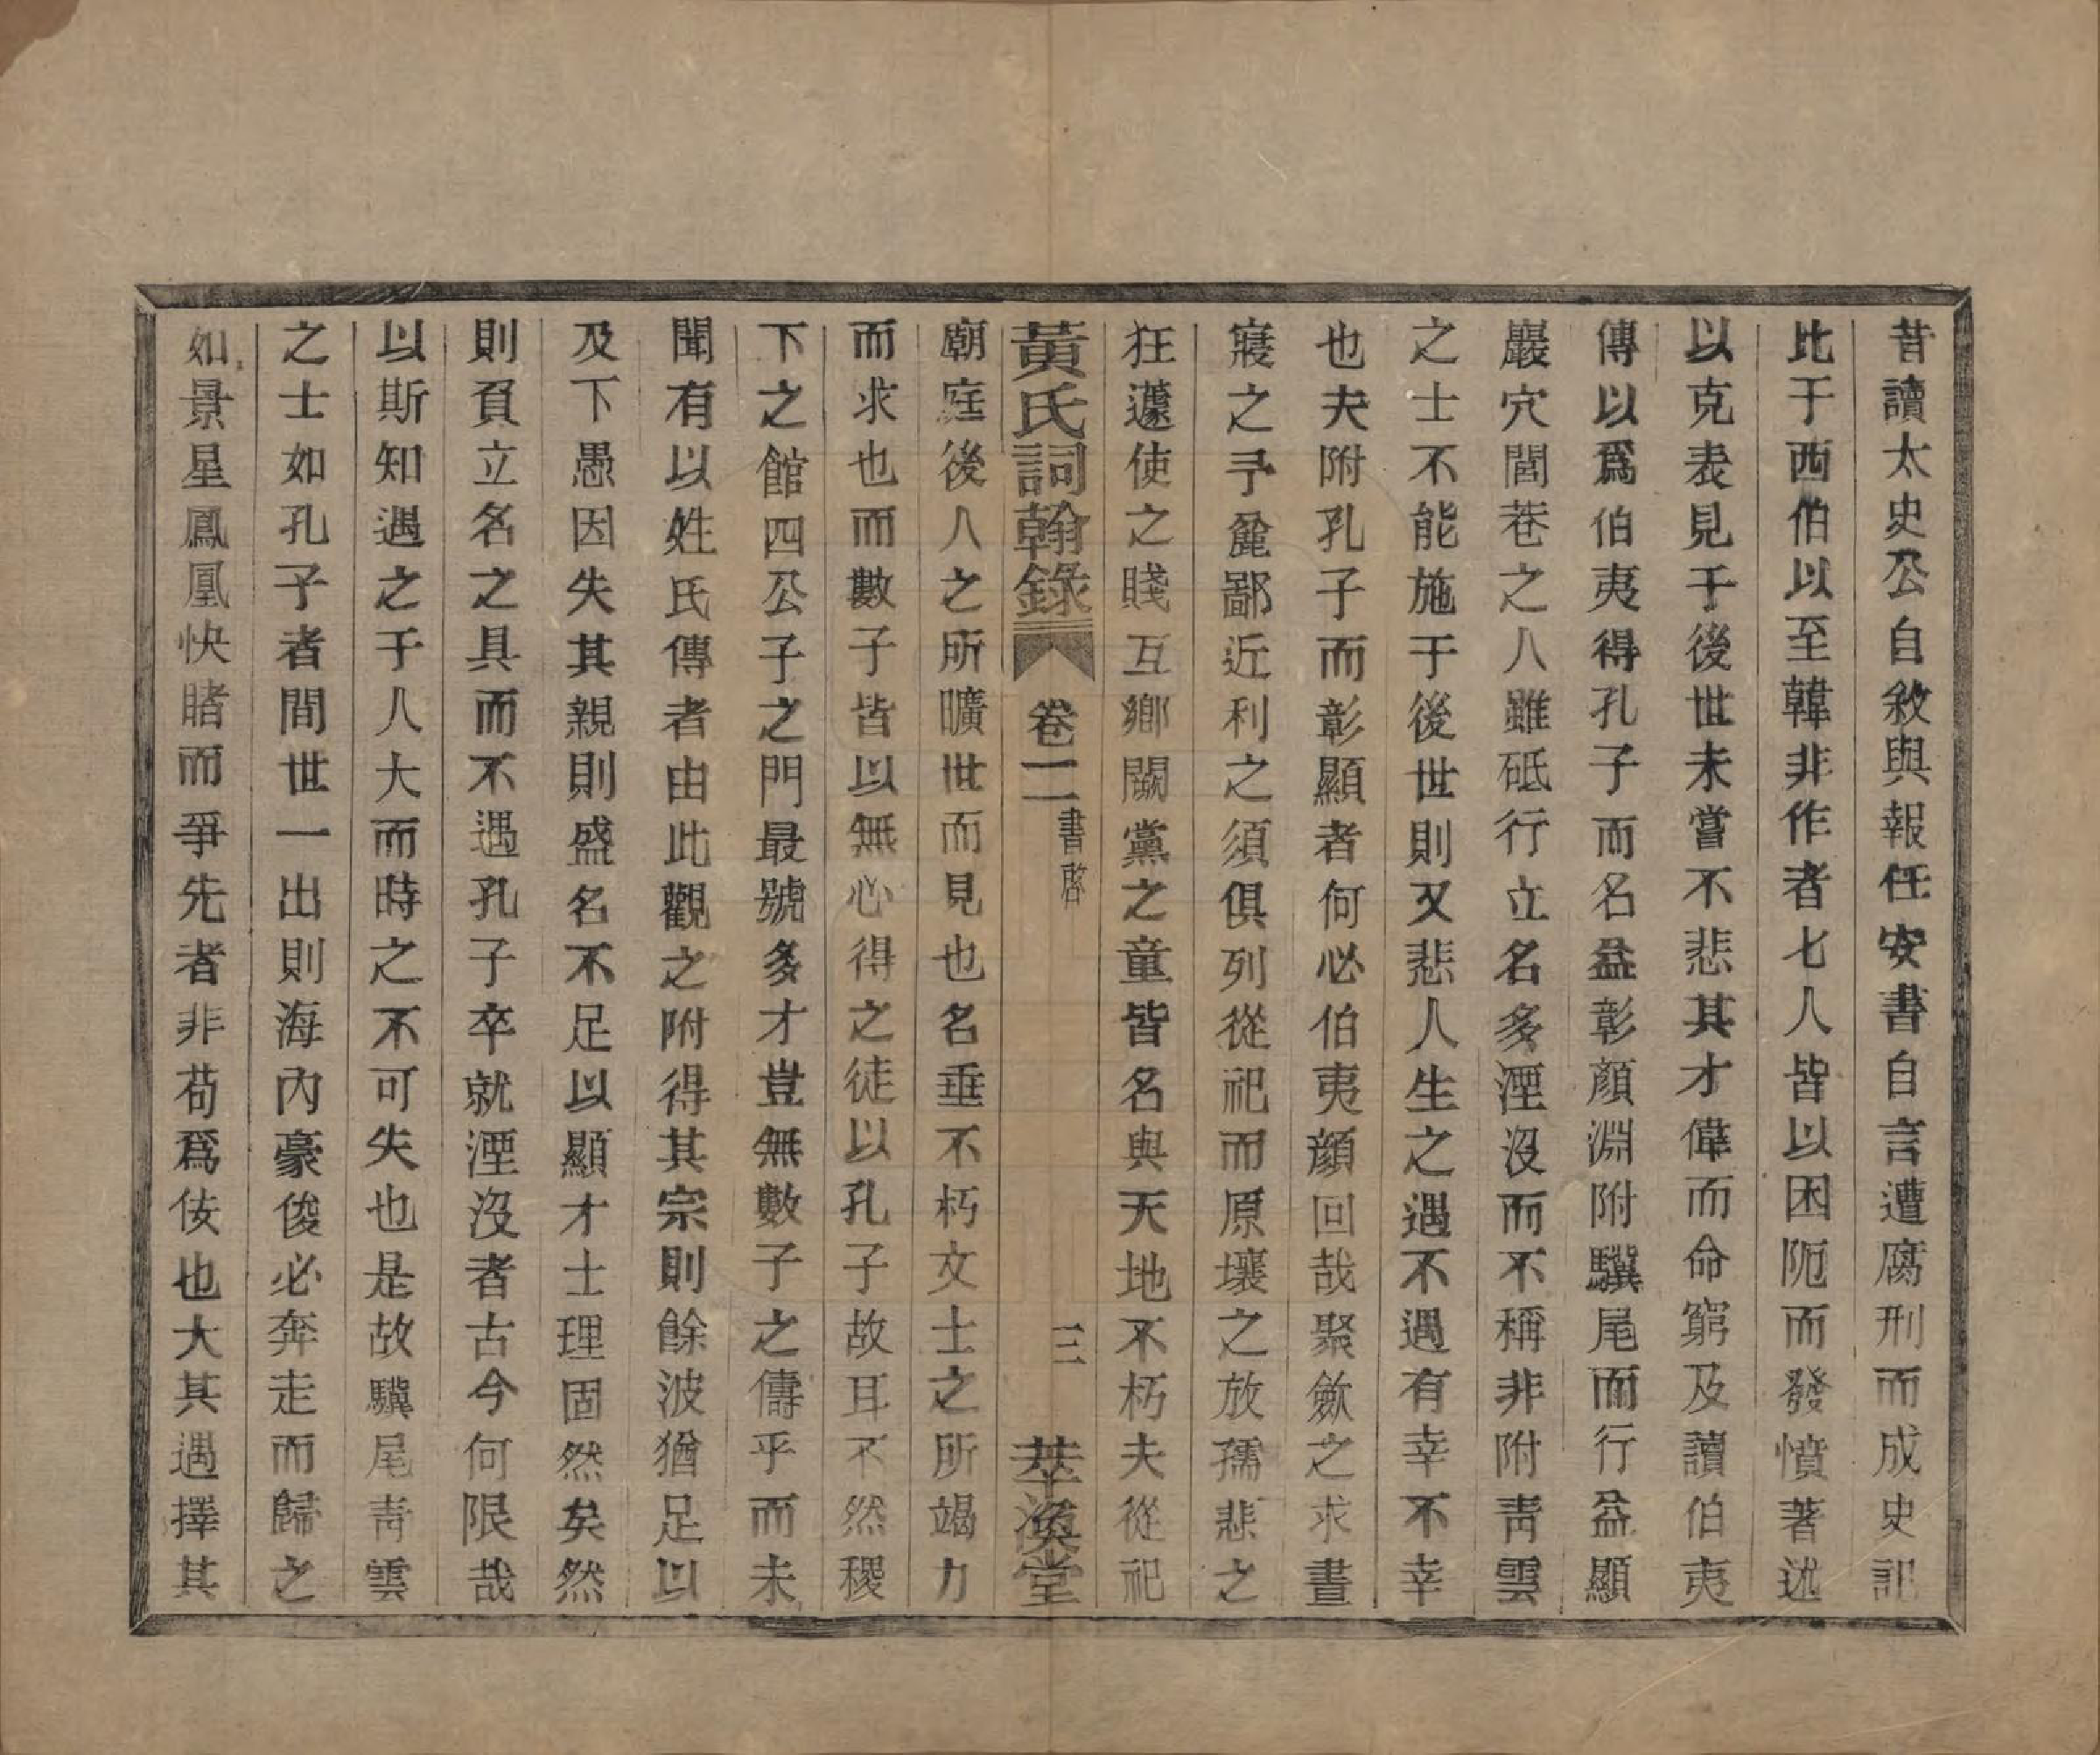 昔讀太史公自敘與報任安書自言遭腐刑而成史記
比于西伯以至韓非作者七人皆以困阨而發憤著述
以克表見于後世未嘗不悲其才偉而命窮及讀伯夷
傳以爲伯夷得孔子而名益彰顏淵附驥尾而行益顯
巖穴閭巷之人雖砥行立名多湮沒而不稱非附靑雲
之士不能施于後世則又悲人生之遇不遇有幸不幸
也夫附孔子而彰顯者何必伯夷顏回哉聚歛之求晝
寢之予麄鄙近利之須俱列從祀而原壤之放孺悲之
狂遽使之賤互鄉闕黨之童皆名與天地不朽夫從祀
黃氏詞翰錄 卷二 書啓 三 萃渙堂
廟庭後人之所曠世而見也名垂不朽文士之所竭力
而求也而數子皆以無心得之徒以孔子故耳不然稷
下之館四公子之門最號多才豈無數子之儔乎而未
聞有以姓氏傳者由此觀之附得其宗則餘波猶足以
及下愚因失其親則盛名不足以顯才士理固然矣然
則負立名之具而不遇孔子卒就湮沒者古今何限哉
以斯知遇之于人大而時之不可失也是故驥尾靑雲
之士如孔子者間世一出則海內豪俊必奔走而歸之
如景星鳳凰快睹而爭先者非苟爲佞也大其遇擇其